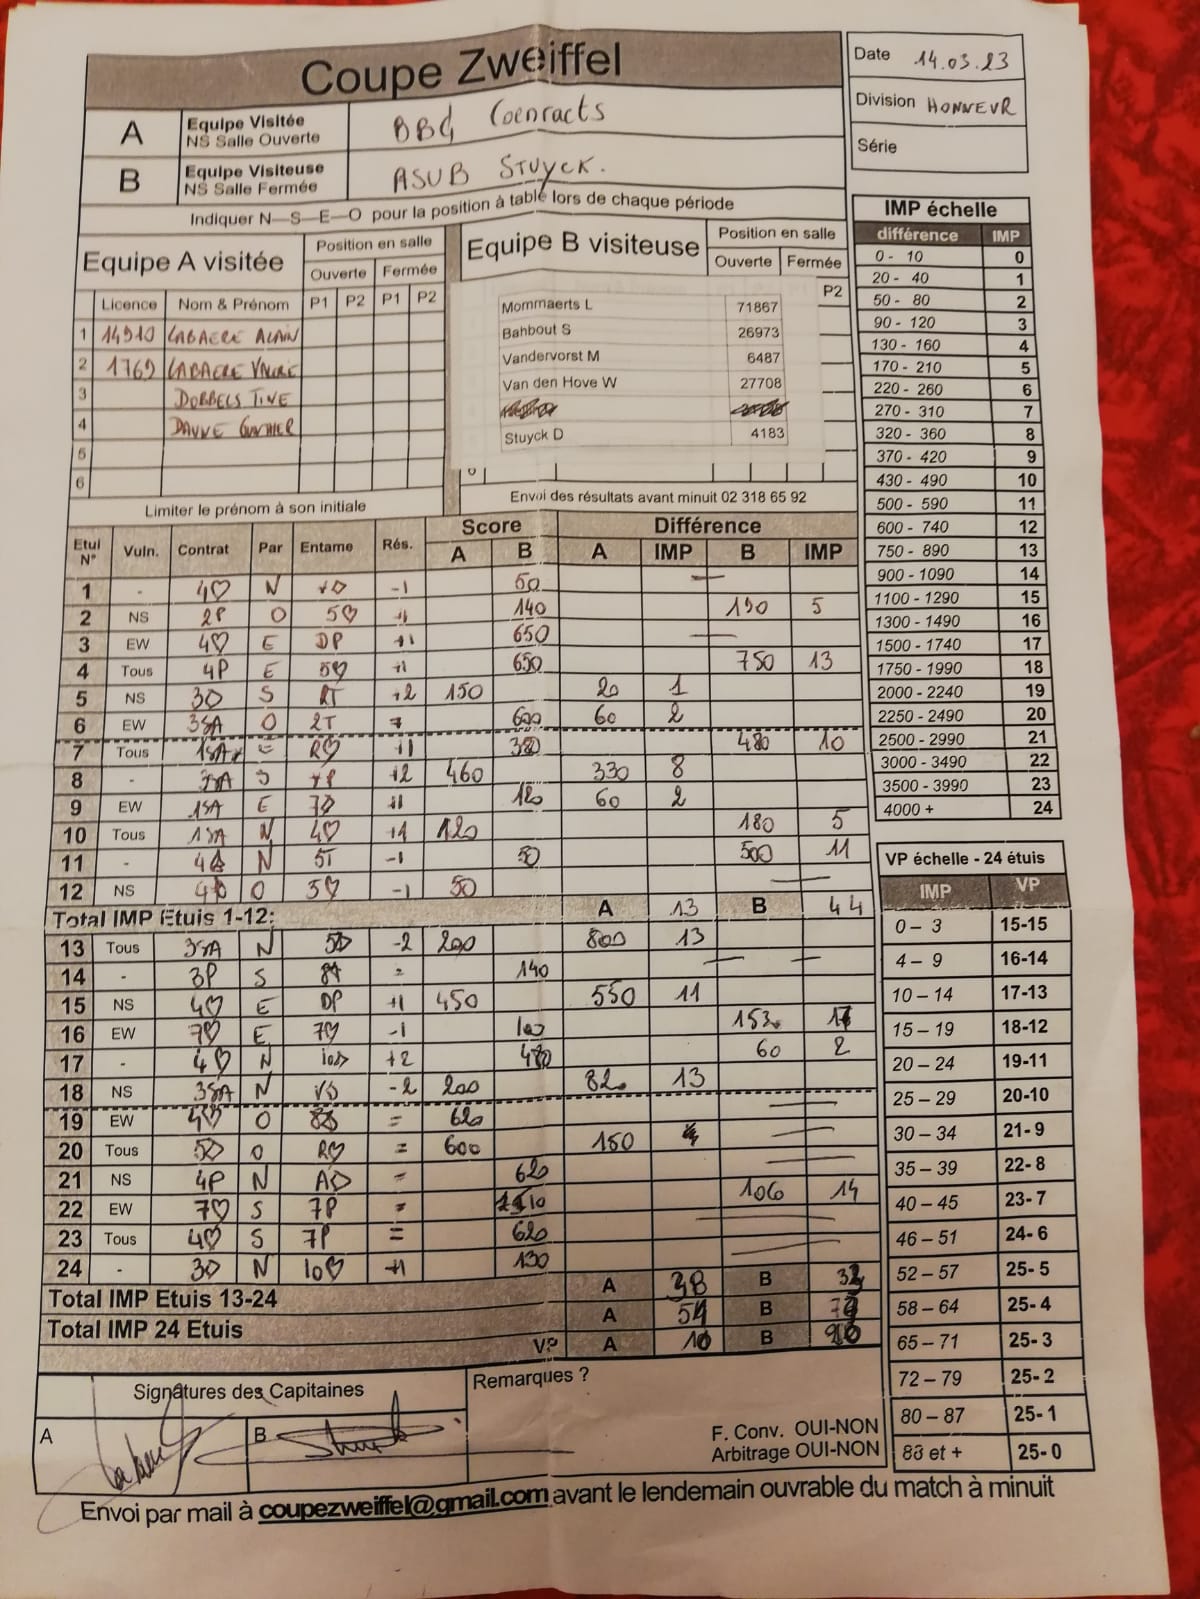 Coupe Zweiffel
Date 14.03.23
Division HONNEUR
Série
A Equipe Visitée NS Salle Ouverte BBG Coenraets
B Equipe Visiteuse NS Salle Fermée ASUB STUYCK.
Indiquer N—S—E—O pour la position à table lors de chaque période
Equipe A visitée Position en salle Equipe B visiteuse Position en salle
Ouverte Fermée Ouverte Fermée
Licence Nom & Prénom P1 P2 P1 P2 P2
1 14910 LABAERE ALAIN
2 1769 LABAERE
3 DOBBELS TINE
4 DAUVE
5
6
Mommaerts L 71867
Bahbout S 26973
Vandervorst M 6487
Van den Hove W 27708
Stuyck D 4183
Limiter le prénom à son initiale
Envoi des résultats avant minuit 02 318 65 92
Score Différence
Etui N° Vuln. Contrat Par Entame Rés. A B A IMP B IMP
1 - 4♡ N V◇ -1 50 —
2 NS 2P O 5♡ 140 190 5
3 EW 4♡ E DP +1 650 —
4 Tous 4P E 5♡ +1 650 750 13
5 NS 3◇ S RT +2 150 20 1
6 EW 3SA O 2T = 600 60 2
7 Tous 1SA E R♡ +1 380 480 10
8 - S +2 460 330 8
9 EW 1SA E 7◇ +1 120 60 2
10 Tous 1SA N 4♡ +1 120 180 5
11 - N 5T -1 50 500 11
12 NS O 5♡ -1 50 —
Total IMP Etuis 1-12: A 13 B 44
13 Tous 3SA N 5◇ -2 200 800 13
14 - 3P S = 140 — —
15 NS 4♡ E DP +1 450 550 11
16 EW 7♡ E 7♡ -1 100
17 - 4♡ N 10◇ +2 480 60 2
18 NS 3SA N -2 200 820 13
19 EW 4♡ O = 620 —
20 Tous 5◇ O R♡ = 600 150 —
21 NS 4P N A◇ = 620 —
22 EW 7♡ S 7P = 14
23 Tous 4♡ S 7P = 620 —
24 - 3◇ N 10♡ +1 130 —
Total IMP Etuis 13-24 A B
Total IMP 24 Etuis A B
VP A 10 B 20
Signatures des Capitaines
A B
Remarques ?
F. Conv. OUI-NON
Arbitrage OUI-NON
IMP échelle
différence IMP
0 - 10 0
20 - 40 1
50 - 80 2
90 - 120 3
130 - 160 4
170 - 210 5
220 - 260 6
270 - 310 7
320 - 360 8
370 - 420 9
430 - 490 10
500 - 590 11
600 - 740 12
750 - 890 13
900 - 1090 14
1100 - 1290 15
1300 - 1490 16
1500 - 1740 17
1750 - 1990 18
2000 - 2240 19
2250 - 2490 20
2500 - 2990 21
3000 - 3490 22
3500 - 3990 23
4000 + 24
VP échelle - 24 étuis
IMP VP
0 – 3 15-15
4 – 9 16-14
10 – 14 17-13
15 – 19 18-12
20 – 24 19-11
25 – 29 20-10
30 – 34 21- 9
35 – 39 22- 8
40 – 45 23- 7
46 – 51 24- 6
52 – 57 25- 5
58 – 64 25- 4
65 – 71 25- 3
72 – 79 25- 2
80 – 87 25- 1
88 et + 25- 0
Envoi par mail à coupezweiffel@gmail.com avant le lendemain ouvrable du match à minuit